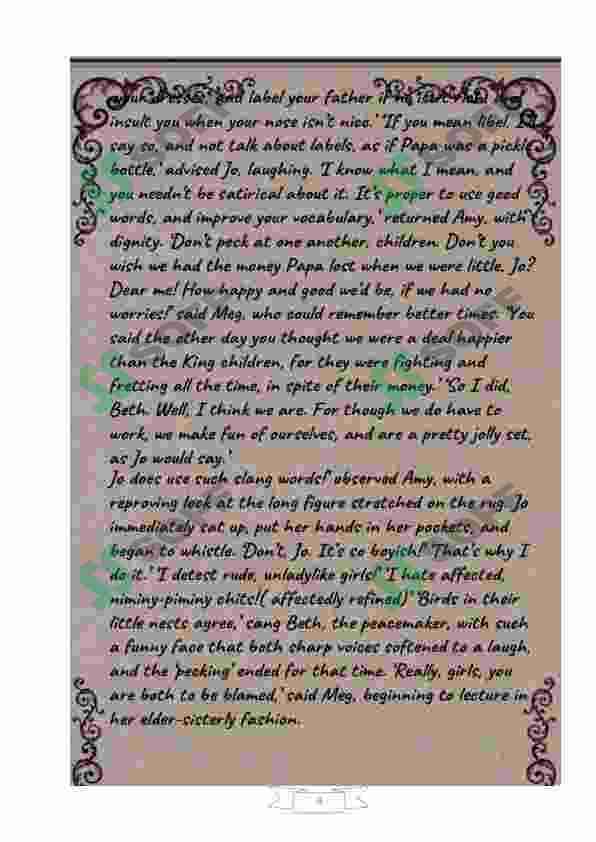 your dresses,' and label your father if he isn't rich, and
insult you when your nose isn't nice.' 'If you mean libel, I'd
say so, and not talk about labels, as if Papa was a pickle
bottle,' advised Jo, laughing. 'I know what I mean, and
you needn't be satirical about it. It's proper to use good
words, and improve your vocabulary,' returned Amy, with
dignity. 'Don't peck at one another, children. Don't you
wish we had the money Papa lost when we were little, Jo?
Dear me! How happy and good we'd be, if we had no
worries!' said Meg, who could remember better times. 'You
said the other day you thought we were a deal happier
than the King children, for they were fighting and
fretting all the time, in spite of their money.' 'So I did,
Beth. Well, I think we are. For though we do have to
work, we make fun of ourselves, and are a pretty jolly set,
as Jo would say.'
Jo does use such slang words!' observed Amy, with a
reproving look at the long figure stretched on the rug. Jo
immediately sat up, put her hands in her pockets, and
began to whistle. 'Don't, Jo. It's so boyish!' 'That's why I
do it.' 'I detest rude, unladylike girls!' 'I hate affected,
niminy-piminy chits!( affectedly refined)' 'Birds in their
little nests agree,' sang Beth, the peacemaker, with such
a funny face that both sharp voices softened to a laugh,
and the 'pecking' ended for that time. 'Really, girls, you
are both to be blamed,' said Meg, beginning to lecture in
her elder-sisterly fashion.